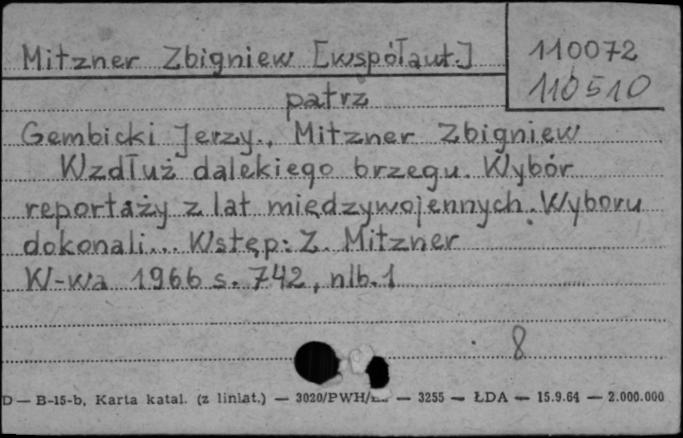 Mitzner Zbigniew [współaut.]
110072
110510
patrz
Gembicki Jerzy., Mitzner Zbigniew
Wzdłuż dalekiego brzegu. Wybór
reportaży z lat międzywojennych. Wyboru
dokonali... Wstęp: Z. Mitzner
W-wa 1966 s. 742, nlb. 1
8
D — B-15-b, Karta katal. (z liniat.) — 3020/PWH/ — 3255 — ŁDA — 15.9.64 — 2.000.000